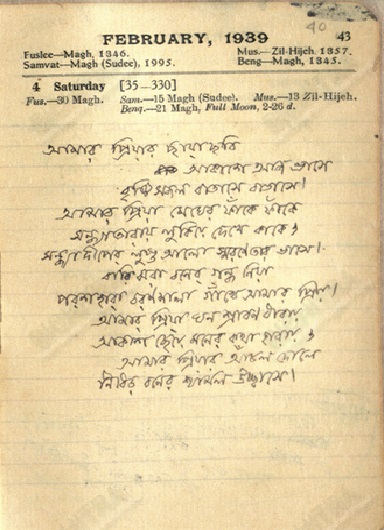 40
FEBRUARY, 1939 43
Fuslee—Magh, 1346. Mus.—Zil-Hijeh. 1357.
Samvat—Magh (Sudee), 1995. Beng—Magh, 1345.
4 Saturday [35—330]
Fus.—30 Magh. Sam.—15 Magh (Sudee). Mus.—13 Zil-Hijeh.
Beng.—21 Magh, Full Moon, 2-26 d.
আমার প্রিয়ার ছায়া ছবি
আকাশে আজ ভাসে
বৃষ্টি সজল বাতাসে বাতাসে।
আমার প্রিয়া মেঘের ফাঁকে ফাঁকে
সন্ধ্যাতারায় লুকিয়ে দেখে কাকে,
সন্ধ্যাদীপের লুপ্ত আলো স্মরণে তার ভাসে।
বারি ঝরা বনের গন্ধ নিয়া
পরশহারা বরণমালা গাঁথে আমার প্রিয়া।
আমার প্রিয়া ঘন শ্রাবণ ধারায়
আকাশ ছেয়ে মনের কথা হারায়,
আমার প্রিয়ার আঁচল দোলে
নিবিড় বনের শ্যামল উচ্ছ্বাসে।